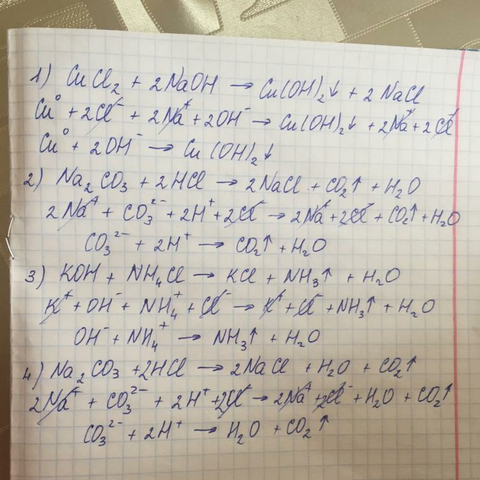 1) CuCl₂ + 2NaOH → Cu(OH)₂↓ + 2NaCl
Cu⁰ + 2Cl⁻ + 2Na⁺ + 2OH⁻ → Cu(OH)₂↓ + 2Na⁺ + 2Cl⁻
Cu⁰ + 2OH⁻ → Cu(OH)₂↓
2) Na₂CO₃ + 2HCl → 2NaCl + CO₂↑ + H₂O
2Na⁺ + CO₃²⁻ + 2H⁺ + 2Cl⁻ → 2Na⁺ + 2Cl⁻ + CO₂↑ + H₂O
CO₃²⁻ + 2H⁺ → CO₂↑ + H₂O
3) KOH + NH₄Cl → KCl + NH₃↑ + H₂O
K⁺ + OH⁻ + NH₄⁺ + Cl⁻ → K⁺ + Cl⁻ + NH₃↑ + H₂O
OH⁻ + NH₄⁺ → NH₃↑ + H₂O
4) Na₂CO₃ + 2HCl → 2NaCl + H₂O + CO₂↑
2Na⁺ + CO₃²⁻ + 2H⁺ + 2Cl⁻ → 2Na⁺ + 2Cl⁻ + H₂O + CO₂↑
CO₃²⁻ + 2H⁺ → H₂O + CO₂↑